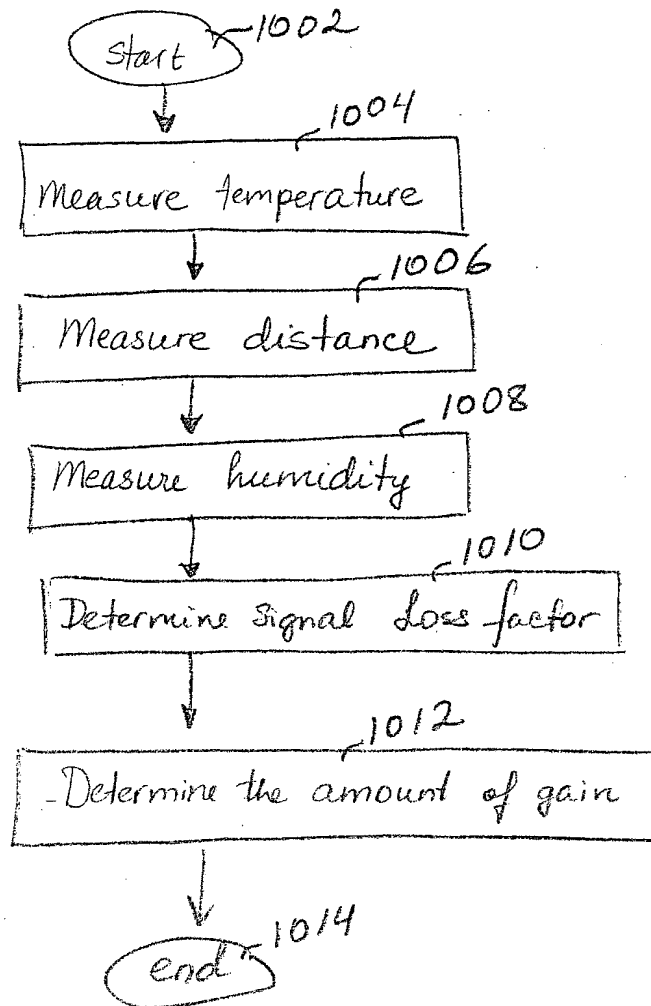 1002
start
1004
Measure temperature
1006
Measure distance
1008
Measure humidity
1010
Determine signal Loss factor
1012
Determine the amount of gain
1014
end